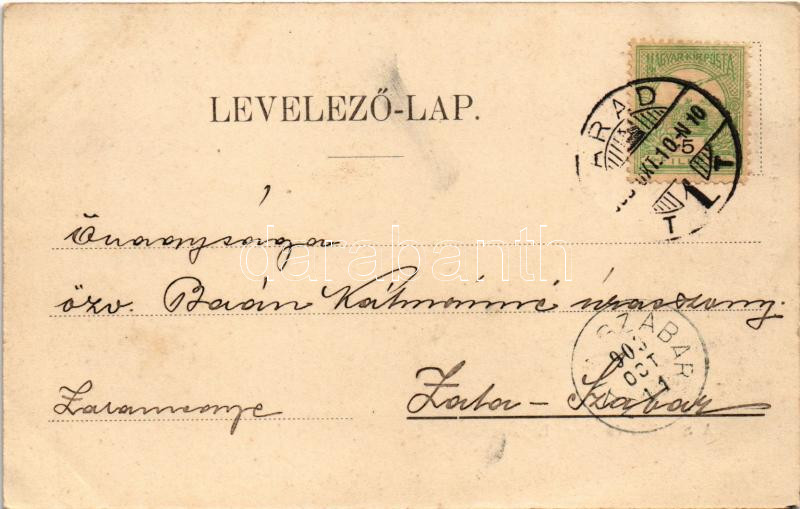 MAGYAR KIR. POSTA
LEVELEZŐ-LAP.
ARAD
OKT. 10 - N 10
5
T 1 T
Őnagysága
özv. Baán Kálmánné úrasszony.
Zalamegye
Zala-Szabar
SZABAR
903
OCT
11
darabanth